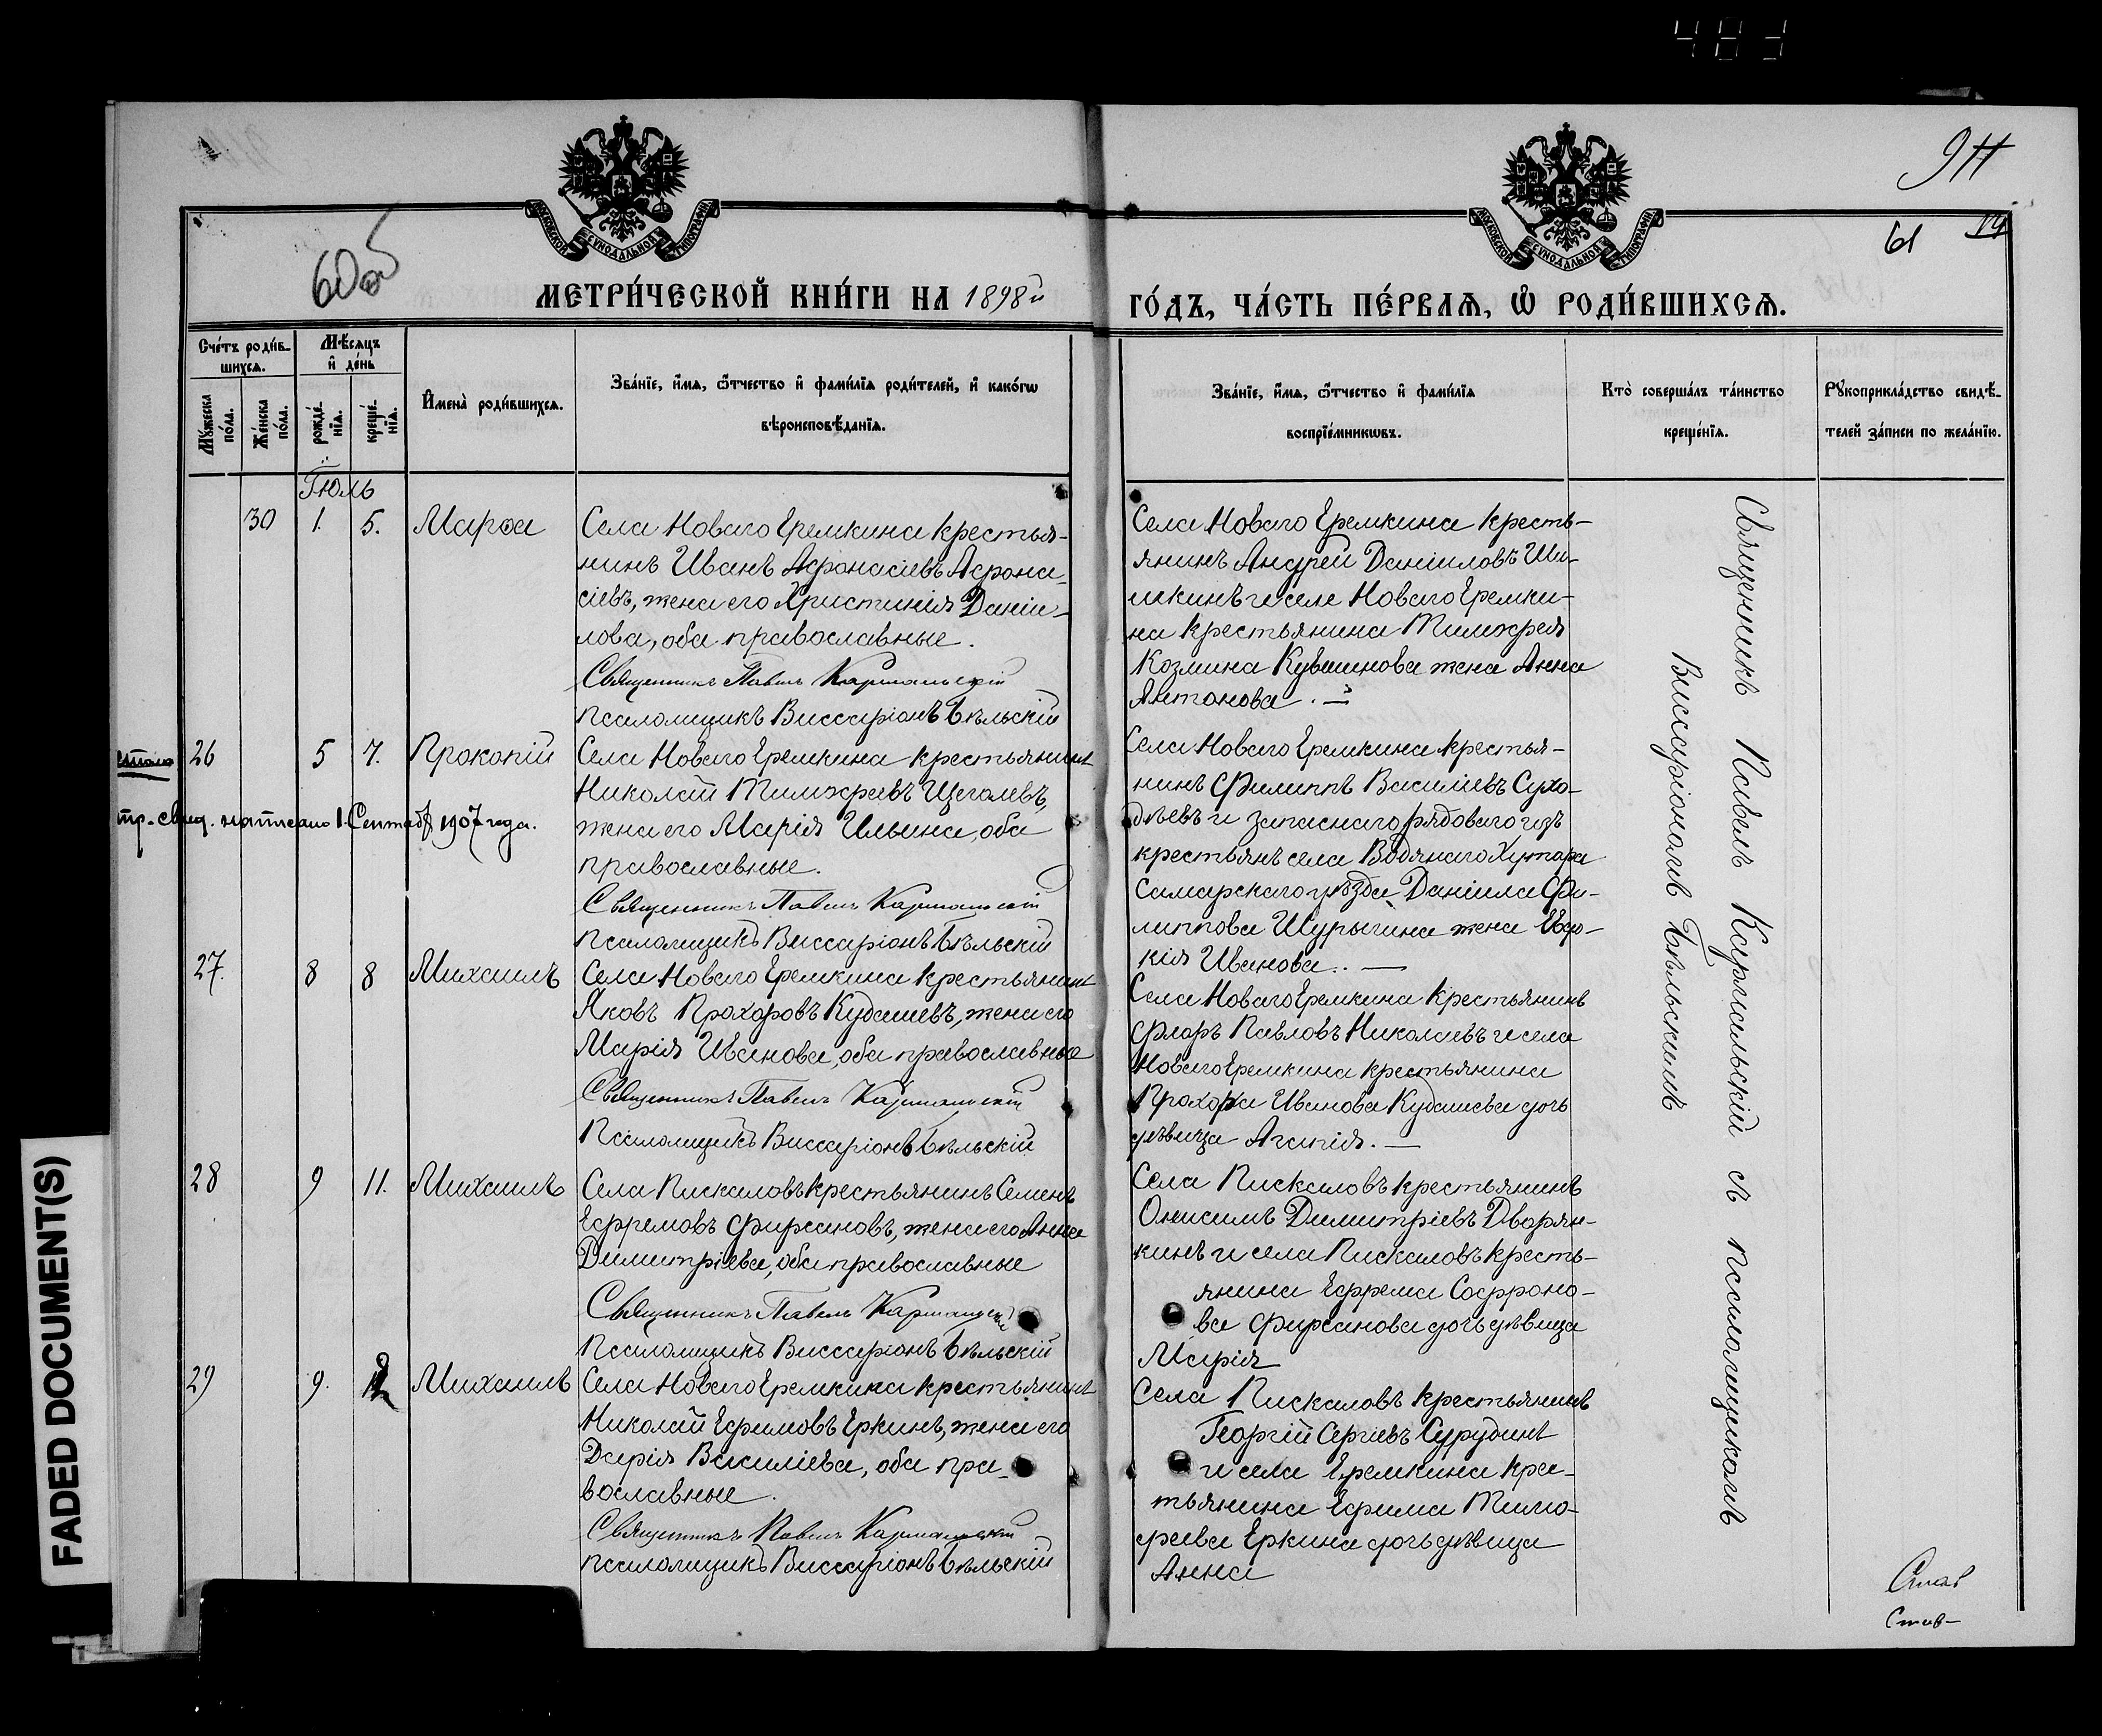 483
911
60об
61
МОСКОВСКОЙ СѴНОДАЛЬНОЙ ТИПОГРАФІИ
МОСКОВСКОЙ СѴНОДАЛЬНОЙ ТИПОГРАФІИ
МЕТРИ́ЧЕСКОЙ КНИ́ГИ НА 1898й
ГО́ДЪ, ЧА́СТЬ ПЕ́РВАѦ, Ѽ РОДИ́ВШИХСѦ.
Сче́тъ роди́в-
шихсѧ.
Мѣ́сѧцъ
и҆ де́нь
Мꙋ́жеска
по́ла.
Же́нска
по́ла.
рожде́-
нїѧ.
креще́-
нїѧ.
И҆мена̀ роди́вшихсѧ.
Зва́нїе, и҆́мѧ, ѻ҆́тчество и҆ фами́лїѧ роди́телей, и҆ како́гѡ
вѣроисповѣ́данїѧ.
Зва́нїе, и҆́мѧ, ѻ҆́тчество и҆ фами́лїѧ
воспрїе́мникѡвъ.
Кто̀ соверша́лъ та́инство
креще́нїѧ.
Рꙋкоприкла́дство свидѣ́-
телей за́писи по жела́нїю.
Іюль
30 1. 5. Марѳа
Села Новаго Еремкина крестья-
нинъ Иванъ Афонасіевъ Афона-
сіевъ, жена его Христинія Даніи-
лова, оба православные.
Священникъ Павелъ Кармальскій
Псаломщикъ Виссаріонъ Бѣльскій
Села Новаго Еремкина кресть-
янинъ Андрей Данииловъ Ши-
шкинъ и села Новаго Еремки-
на крестьянина Тимофея
Козмина Кувшинова жена Анна
Антонова. —
26 5 7. Прокопій
Села Новаго Еремкина крестьянинъ
Николай Тимофеевъ Щеголевъ,
жена его Марія Ильина, оба
православные.
Священникъ Павелъ Кармальскій
Псаломщикъ Виссаріонъ Бѣльскій
написано 1 Сентяб 1907 года.
Села Новаго Еремкина крестья-
нинъ Филиппъ Василіевъ Сухо-
дѣевъ и запаснаго рядоваго изъ
крестьянъ села Водянаго Хутара
Самарскаго уѣзда Даніила Фи-
липпова Шурыгина жена Евдо-
кія Иванова. —
27. 8 8 Михаилъ
Села Новаго Еремкина крестьянинъ
Яковъ Прохоровъ Кудашевъ, жена его
Марія Иванова, оба православные
Священникъ Павелъ Кармальскій
Псаломщикъ Виссаріонъ Бѣльскій
Села Новаго Еремкина крестьянинъ
Флоръ Павловъ Николаевъ и села
Новаго Еремкина крестьянина
Прохора Иванова Кудашева дочь
дѣвица Агапія. —
28 9 11. Михаилъ
Села Пискаловъ крестьянинъ Семенъ
Ефремовъ Фирсановъ, жена его Анна
Димитріева, оба православные
Священникъ Павелъ Кармальскій
Псаломщикъ Виссаріонъ Бѣльскій
Села Пискаловъ крестьянинъ
Онисимъ Димитріевъ Дворян-
кинъ и села Пискаловъ кресть-
янина Ефрема Софроно-
ва Фирсанова дочь дѣвица
Марія
29 9. 12 Михаилъ
Села Новаго Еремкина крестьянинъ
Николай Ефимовъ Еркинъ, жена его
Дарія Василіева, оба пра-
вославные.
Священникъ Павелъ Кармальскій
Псаломщикъ Виссаріонъ Бѣльскій
Села Пискаловъ крестьянинъ
Георгій Сергіевъ Сурудинъ
и села Еремкина крес-
тьянина Ефима Тимо-
феева Еркина дочь дѣвица
Анна
Священникъ Павелъ Кармальскій съ псаломщикомъ
Виссаріономъ Бѣльскимъ
Став-
FADED DOCUMENT(S)